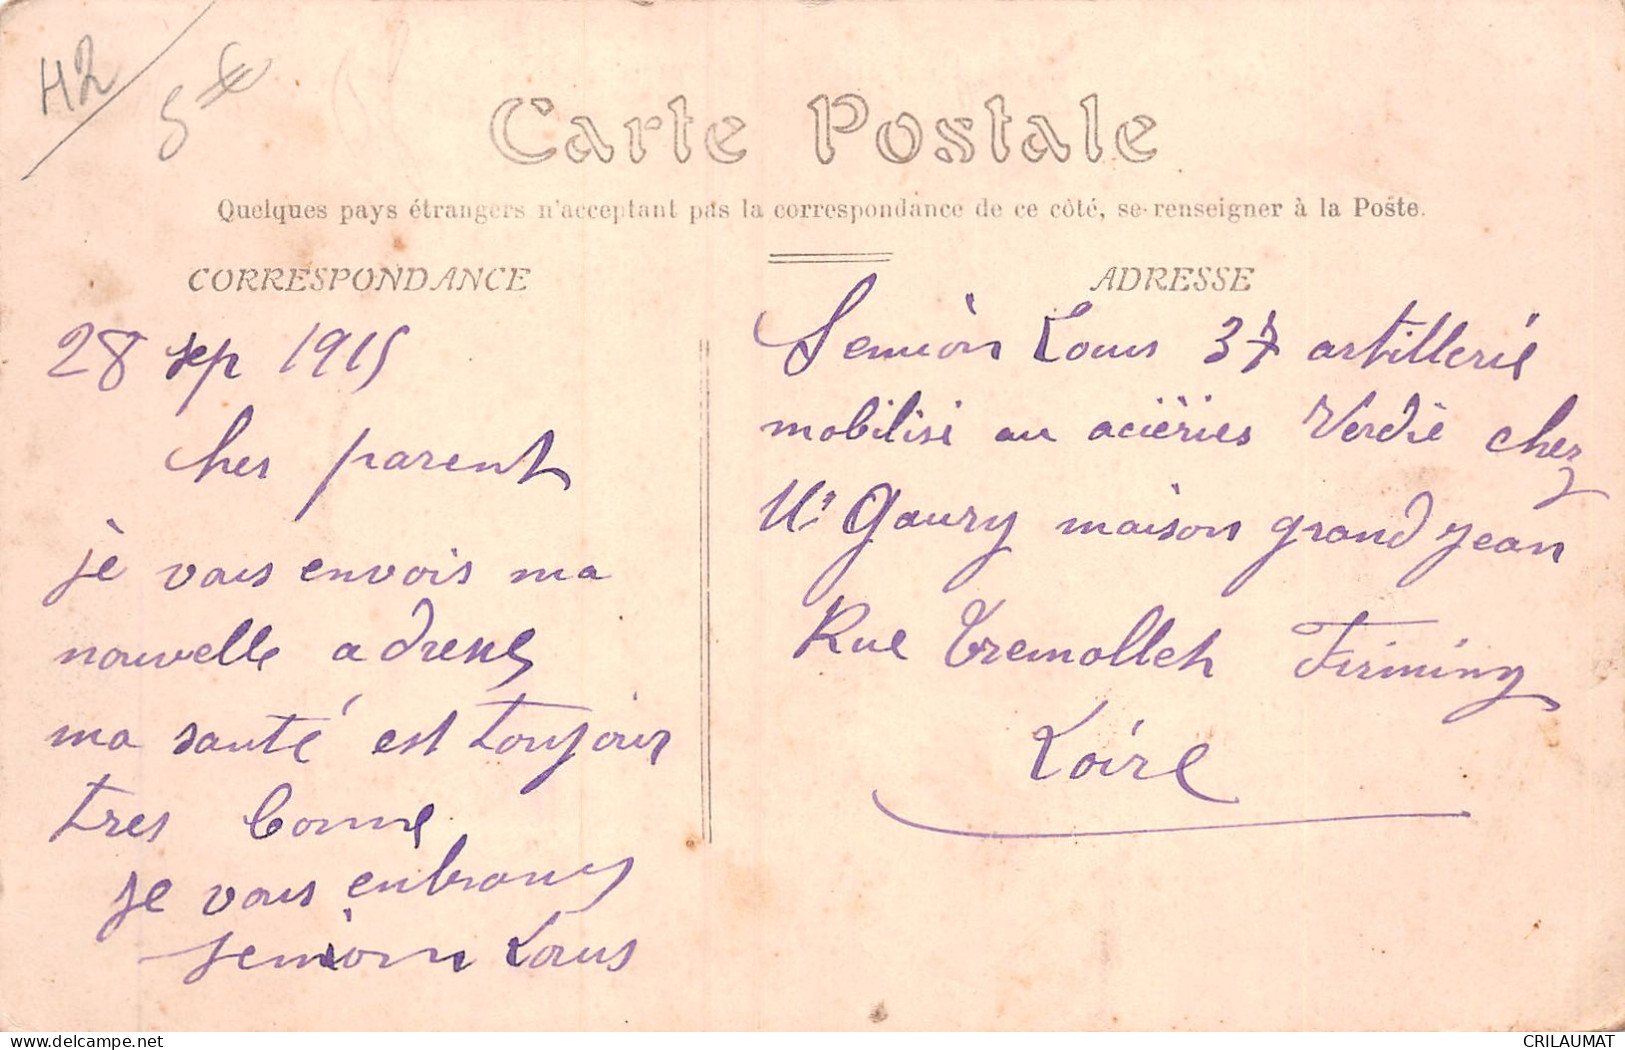 H2
5€
Carte Postale
Quelques pays étrangers n'acceptant pas la correspondance de ce côté, se renseigner à la Poste.
CORRESPONDANCE
28 sep 1915
cher parent
je vous envois ma
nouvelle adresse
ma santé est toujour
tres bonne
je vous enbrass
Semion Louis
ADRESSE
Semion Louis 37 artillerie
mobilisé au aciéries Verdié chez
Mr Gaury maison grand jean
Rue Tremolleh Firminy
Loire
delcampe.net
CRILAUMAT